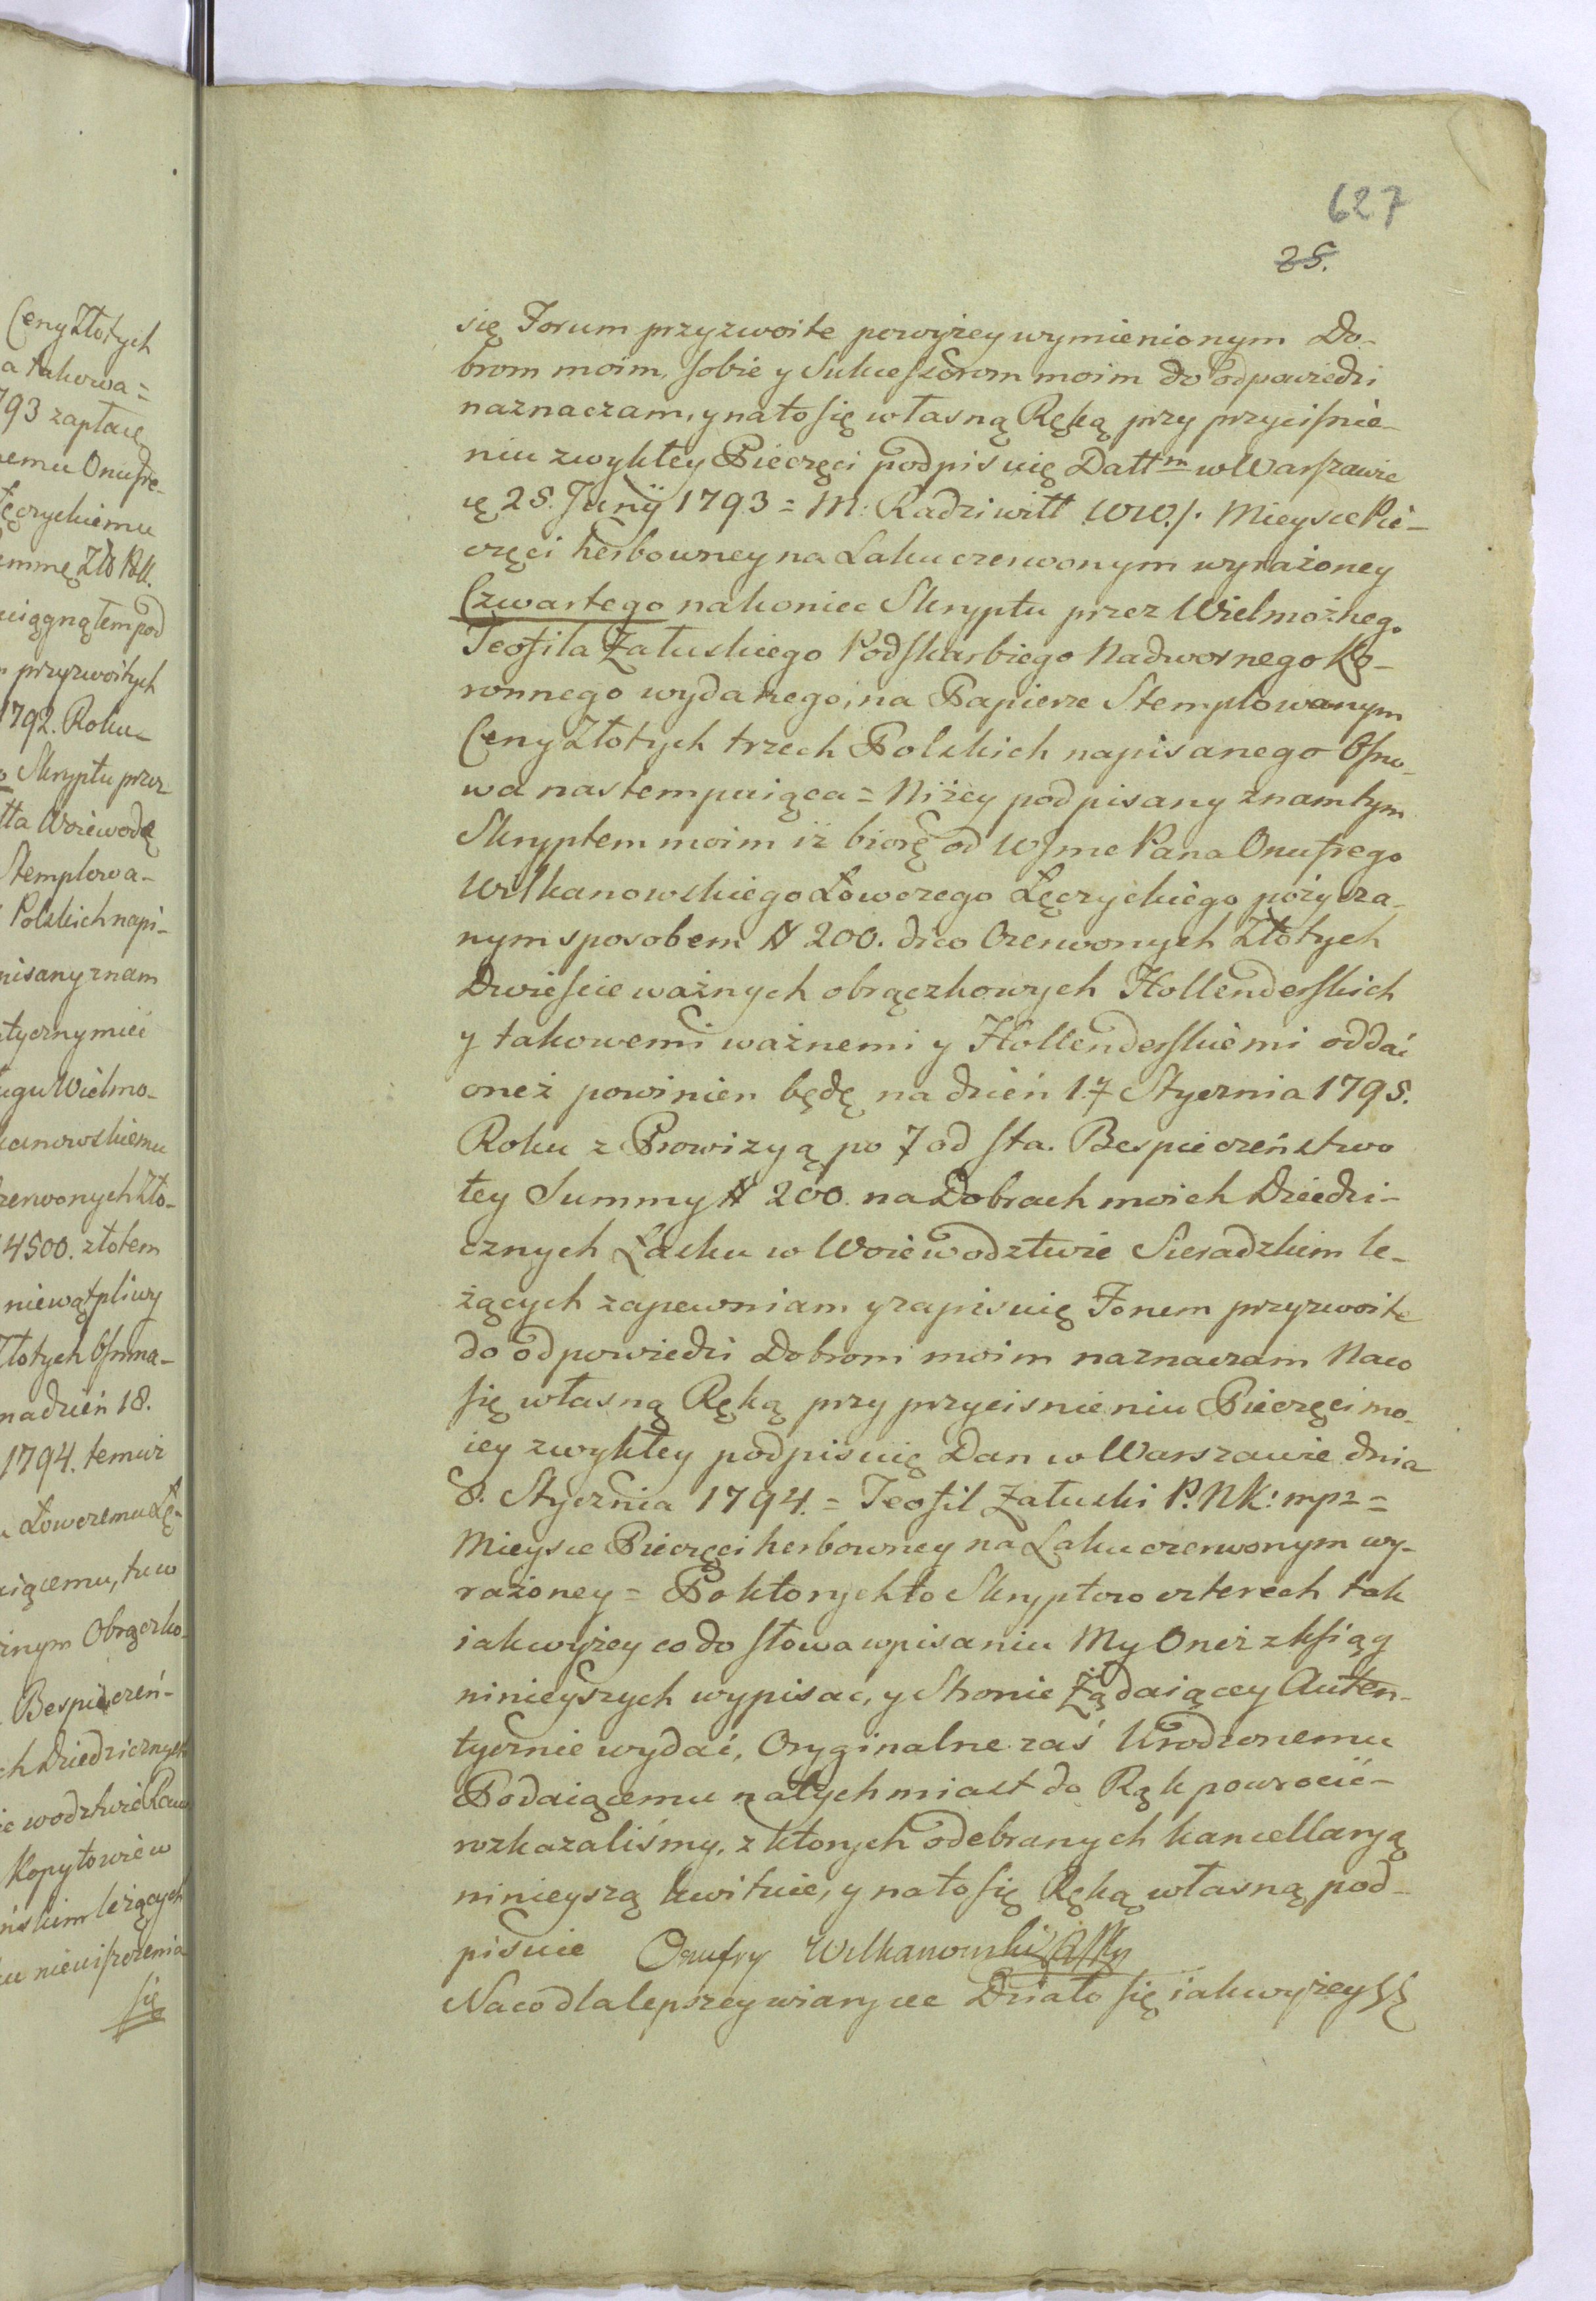 Ceny Złotych
a takowa=
793 zapłacę
nemu Onufre-
Łęczyckiemu
Summę Zło Poll.
ciągnąłem pod
przyzwoitych
1792. Roku-
Skryptu przez
tta Woiewodę
Stemplowa-
Polskich napi-
pisany znam
tycznymieć
ugu Wielmo-
kanowskiemu
zerwonych Zło-
4500. złotem
niewątpliwy
Złotych Osmna-
na dzień 18.
1794. temuż
Łowczemu Łę-
aiącemu, tu w
żnym Obrączko-
Bespieczeń-
ch Dziedzicznych
ie wodztwie Raw
Kopytowie w
ńskim leżących
ku nieuiszczenia
się
627
25.
się Forum przyzwoite powyżey wymienionym Do-
brom moim, sobie y Sukcessorom moim do odpowiedzi
naznaczam, y na to się własną Ręką przy przyciśnie-
niu zwykłey Pieczęci podpisuię Datt m w Warszawie
ię 25. Junÿ 1793 = M: Radziwiłł WW./. Mieysce Pie-
częci herbowney na Laku czerwonym wyrażoney
Czwartego nakoniec Skryptu przez Wielmożnego
Teofila Załuskiego Podskarbiego Nadwornego Ko-
ronnego wydanego, na Papierze Stemplowanym
Ceny Złotych trzech Polskich napisanego Osno-
wa nastempuiąca = Niżey podpisany znam tym
Skryptem moim iż biorę od WJme Pana Onufrego
Wilkanowskiego Łowczego Łęczyckiego pożycza-
nym sposobem # 200. dico Czerwonych Złotych
Dwieście ważnych obrączkowych Hollenderskich
y takowemi ważnemi y Hollenderskiemi oddać
oneż powinien będę na dzień 17 Stycznia 1795.
Roku z Prowizyą po 7 od sta. Bespieczeństwo
tey Summy # 200. na Dobrach moich Dziedzi-
cznych Łasku w Woiewodztwie Sieradzkim le-
żących zapewniam y zapisuię Forum przyzwoite
do odpowiedzi Dobrom moim naznaczam Naco
się własną Ręką przy przycisnieniu Pieczęci mo-
iey zwykłey podpisuię Dan w Warszawie dnia
8. Stycznia 1794. = Teofil Załuski P. NK: mpr =
Mieysce Pieczęci herbowney na Laku czerwonym wy-
rażoney = Po ktorych to Skryptow czterech tak
iak wyżey co do słowa wpisaniu My Oneż z ksiąg
ninieyszych wypisać, y Stronie Żądaiącey Auten-
tycznie wydać, Oryginalne zaś Urodzonemu
Podaiącemu natychmiast do Rąk powrocić-
rozkazaliśmy, z ktorych odebranych kancellaryą
ninieyszą kwituie, y na to się Ręką własną pod-
pisuie Onufry Wilkanowski
Naco dla lepszey wiary etc Działo się iak wyżey